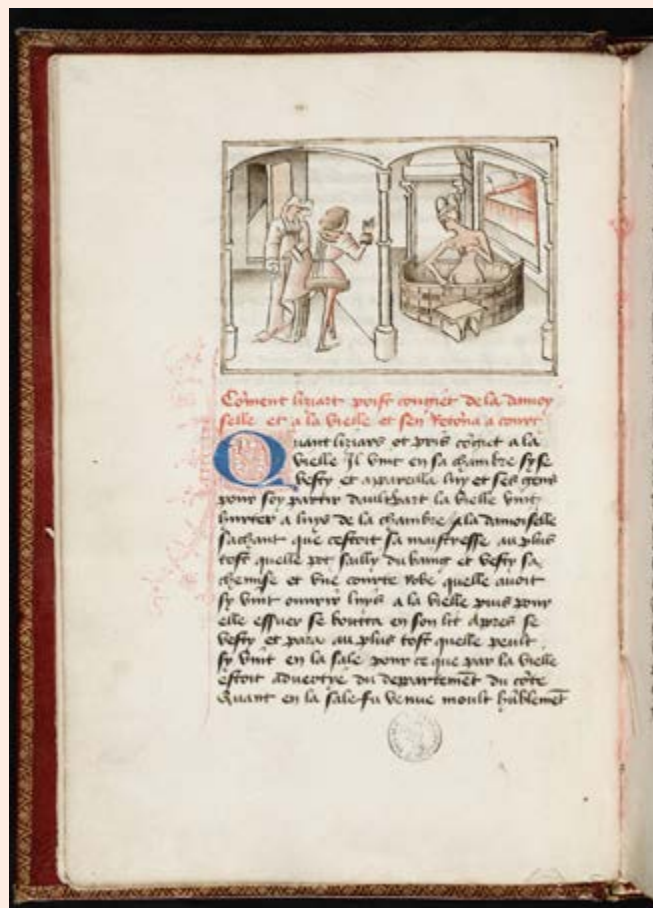 Cõment liziart prist congiet de la damoy
selle et a la vielle et sen Retorna a court
Quant liziars ot pris cõgiet a la
vielle Il vint en sa chambre sy se
vesty et apareilla luy et ses gens
pour soy partir daultpart la vielle vint
hurter a luys de la chambre / la damoiselle
sachant que cestoit sa maistresse au plus
tost quelle pot sailly du baing et vesty sa
chemise et vne courte robe quelle auoit
sy vint ouurir luys a la vielle puis pour
elle essuer se bouta en son lit apres se
vesty et para au plus tost quelle peult
sy vint en la sale pour ce que par la vielle
estoit aduertie du departemẽt du cõte
Quant en la sale fu venue moult hũblemẽt